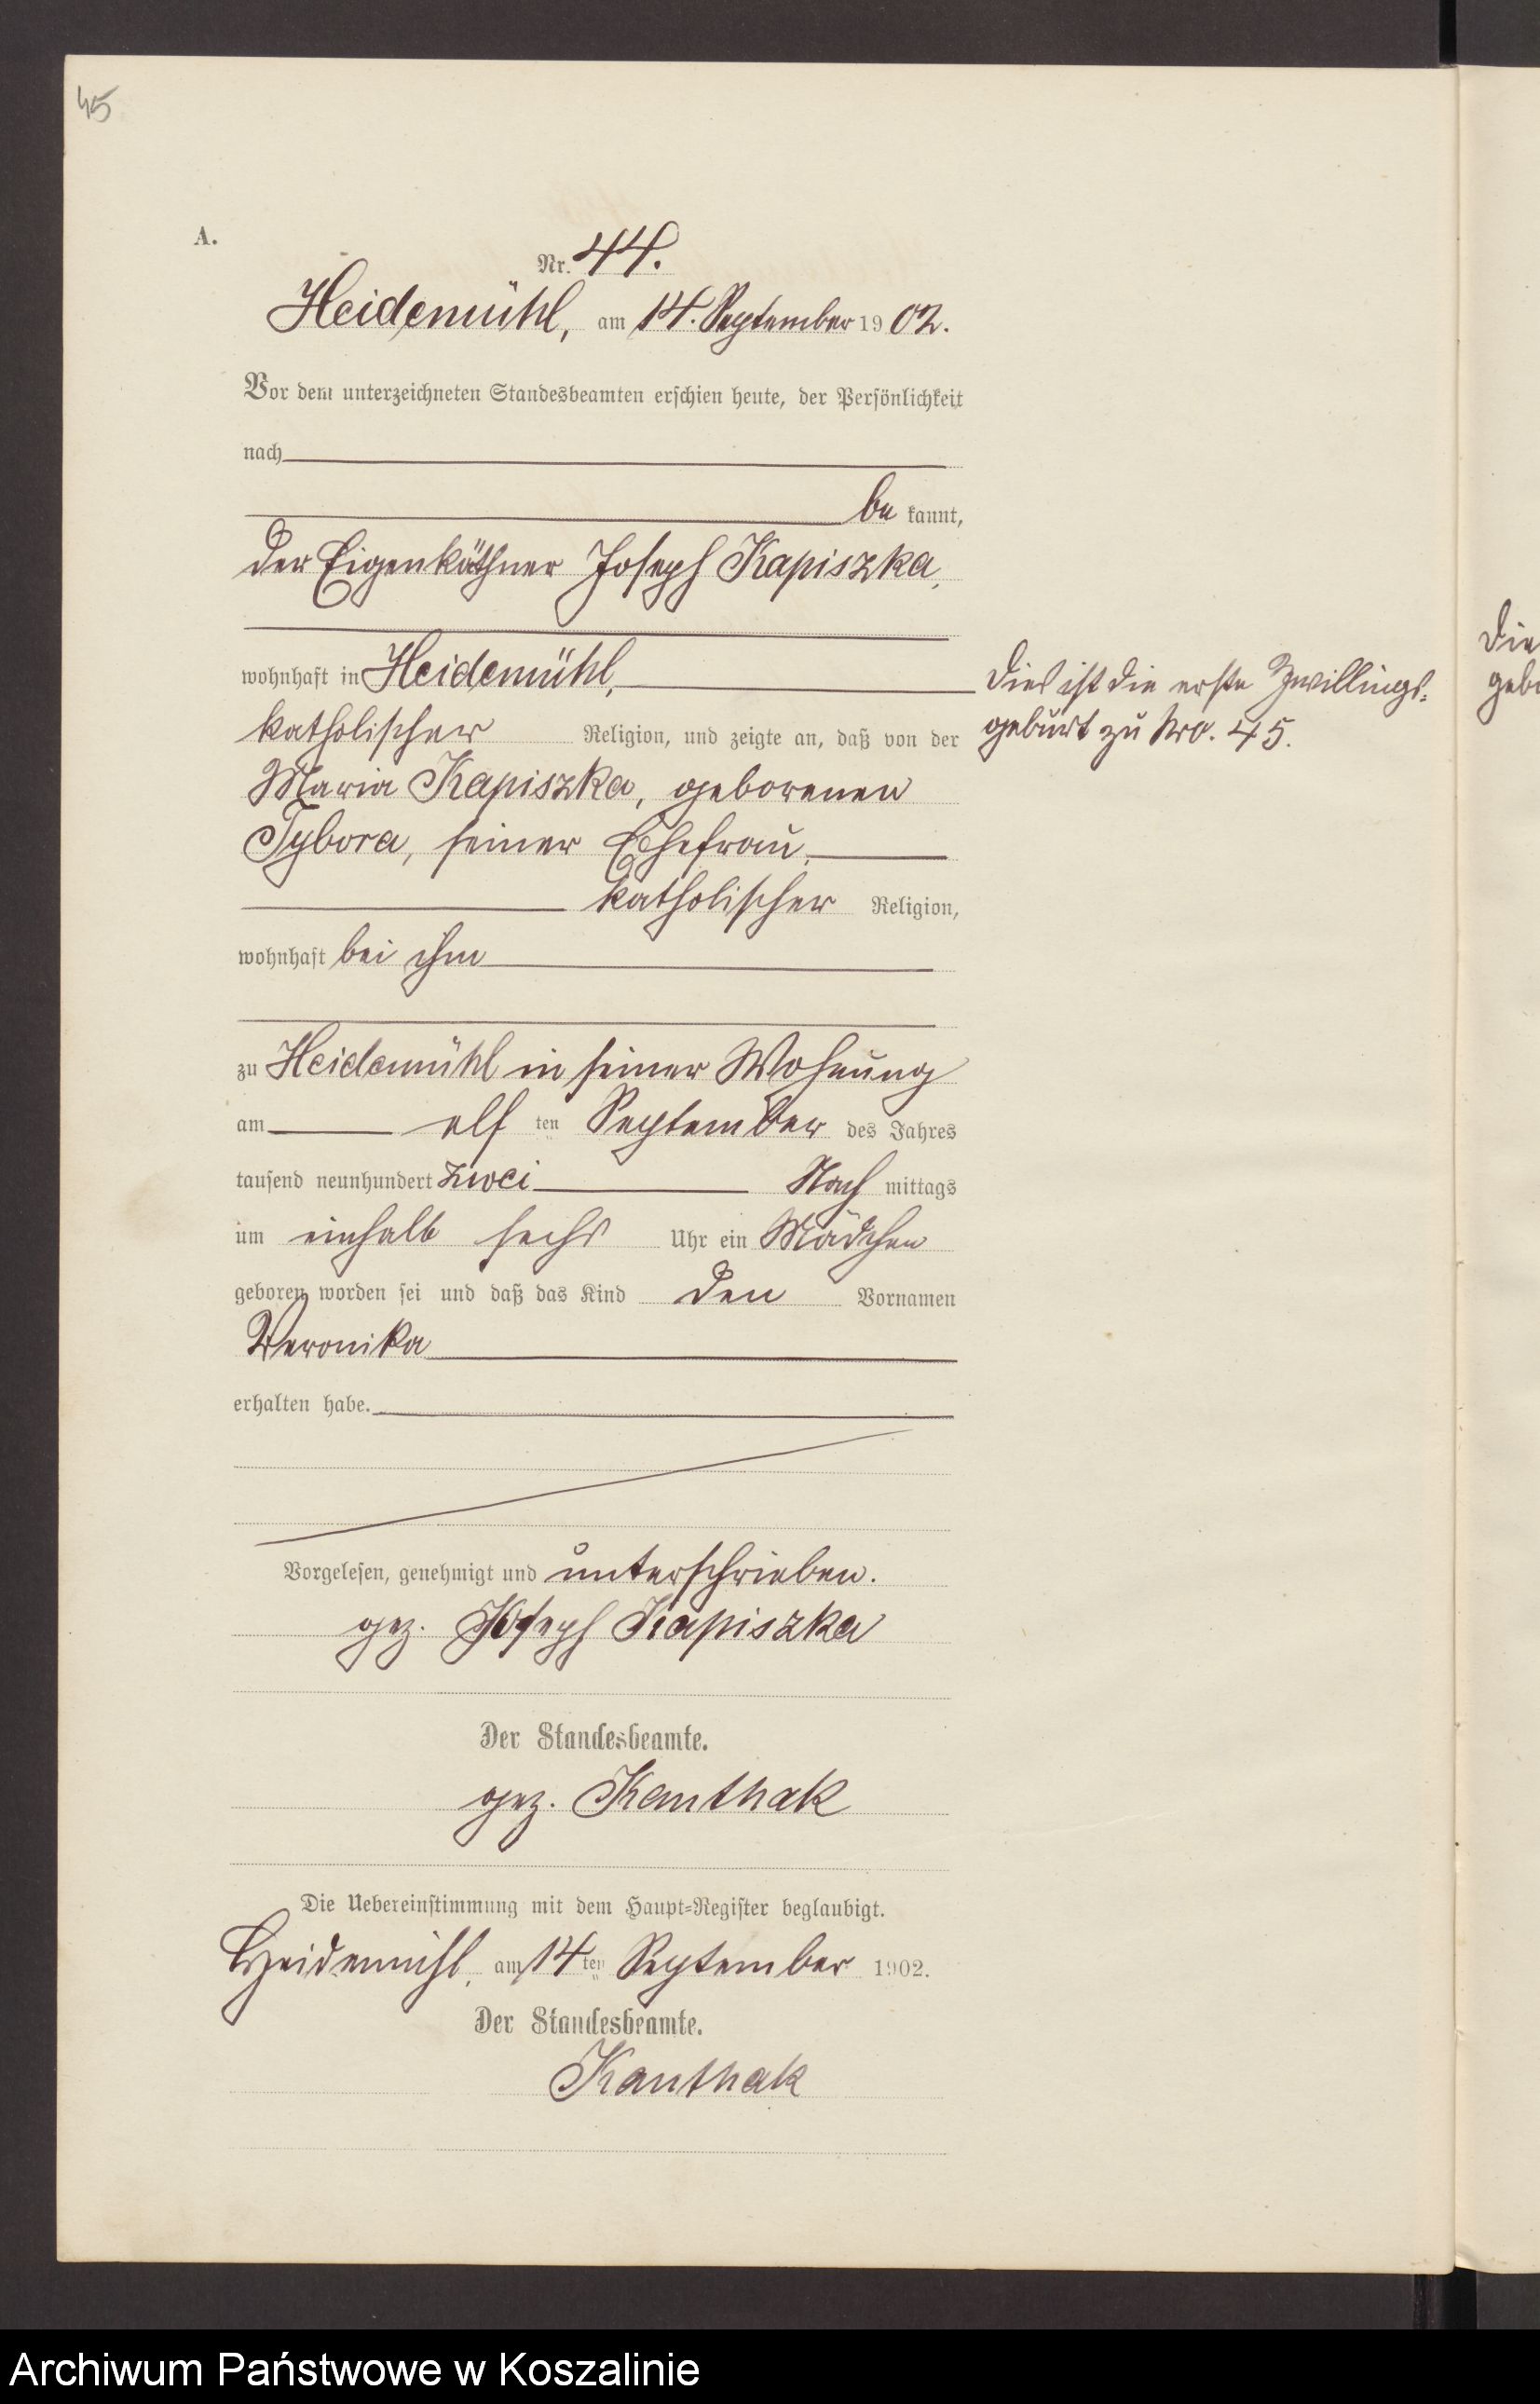 45
A.
Nr. 44.
Heidemühl, am 14. September 1902.
Vor dem unterzeichneten Standesbeamten erschien heute, der Persönlichkeit
nach
be kannt,
der Eigenkäthner Joseph Kapiszka,
wohnhaft in Heidemühl,
katholischer Religion, und zeigte an, daß von der
Maria Kapiszka, geborenen
Tybora, seiner Ehefrau,
katholischer Religion,
wohnhaft bei ihm
zu Heidemühl in seiner Wohnung
am elf ten September des Jahres
tausend neunhundert zwei Nach mittags
um einhalb sechs Uhr ein Mädchen
geboren worden sei und daß das Kind den Vornamen
Veronika
erhalten habe.
Vorgelesen, genehmigt und unterschrieben.
gez. Joseph Kapiszka
Der Standesbeamte.
gez. Kanthak
Die Uebereinstimmung mit dem Haupt-Register beglaubigt.
Heidemühl, am 14 ten September 1902.
Der Standesbeamte.
Kanthak
Dies ist die erste Zwillings-
geburt zu Nro. 45.
Die
geb
Archiwum Państwowe w Koszalinie